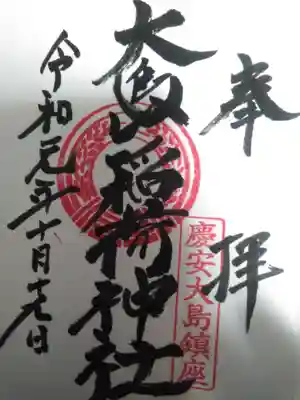 奉拝
慶安大島鎮座
大島稲荷神社
令和元年十月十九日